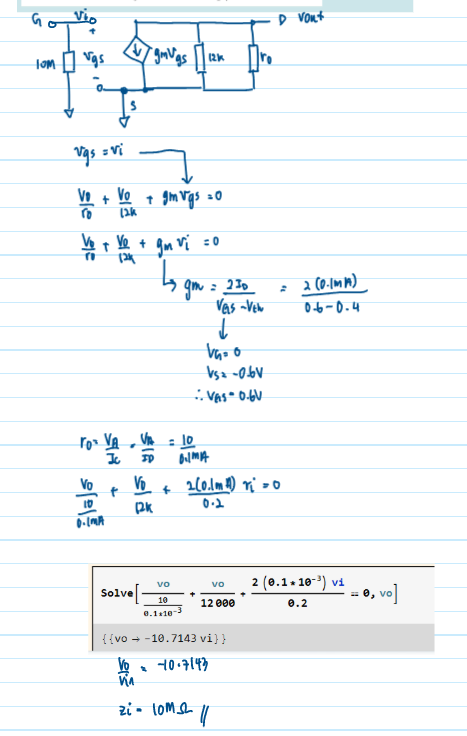 G Vio D Vout
+
10M Vgs gmVgs 12k ro
-
S
Vgs = Vi
Vo/ro + Vo/12k + gmVgs = 0
Vo/ro + Vo/12k + gm Vi = 0
gm = 2ID/(VGS - Vth) = 2(0.1mA)/(0.6-0.4)
VG = 0
VS = -0.6V
∴ VGS = 0.6V
ro = VA/IC = VA/ID = 10/0.1mA
Vo/(10/0.1mA) + Vo/12k + 2(0.1mA)/0.2 Vi = 0
Solve[vo/(10/(0.1*10^-3)) + vo/12000 + 2 (0.1*10^-3) vi/0.2 == 0, vo]
{{vo → -10.7143 vi}}
Vo/Vin = -10.7143
Zi = 10MΩ //